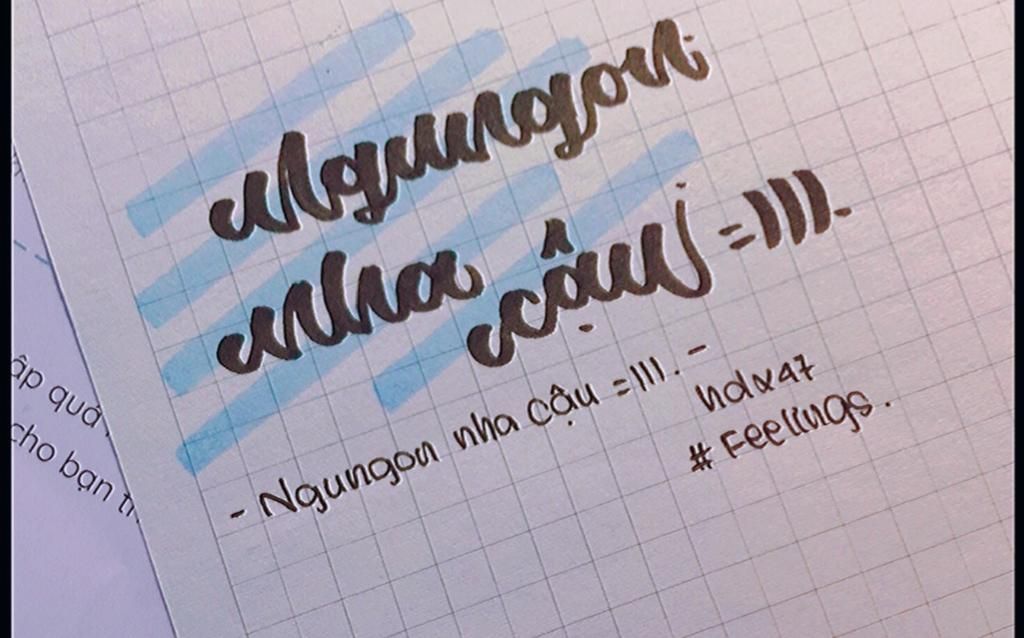 Ngungon
nha cậu =)))).
- Ngungon nha cậu =))). -
hdx47
# Feelings.
ập quá
cho bạn